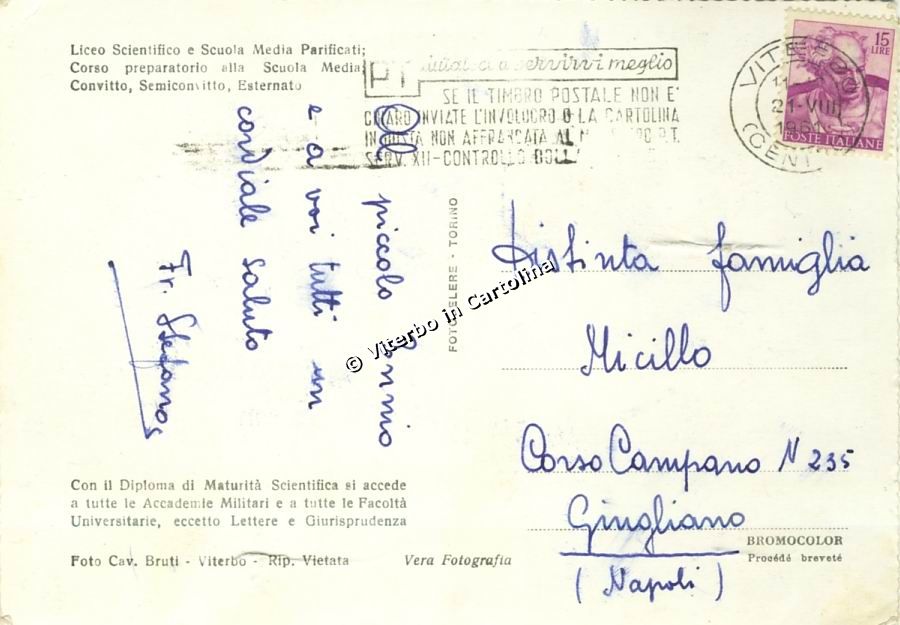 Liceo Scientifico e Scuola Media Parificati;
Corso preparatorio alla Scuola Media
Convitto, Semiconvitto, Esternato
PT
servirvi meglio
SE IL TIMBRO POSTALE NON E'
CHIARO INVIATE L'INVOLUCRO O LA CARTOLINA
IN BUSTA NON AFFRANCATA AL
SERV. XII-CONTROLLO BOLLI
VITERBO
21-VIII
196
(CENTRO)
15
LIRE
POSTE ITALIANE
All piccolo
e a voi tutti un
cordiale saluto
Fr. Stefano
FOTOCELERE - TORINO
© Viterbo in Cartolina
Distinta famiglia
Micillo
Corso Campano N 235
Giugliano
(Napoli)
Con il Diploma di Maturità Scientifica si accede
a tutte le Accademie Militari e a tutte le Facoltà
Universitarie, eccetto Lettere e Giurisprudenza
Foto Cav. Bruti - Viterbo - Rip. Vietata
Vera Fotografia
BROMOCOLOR
Procédé breveté